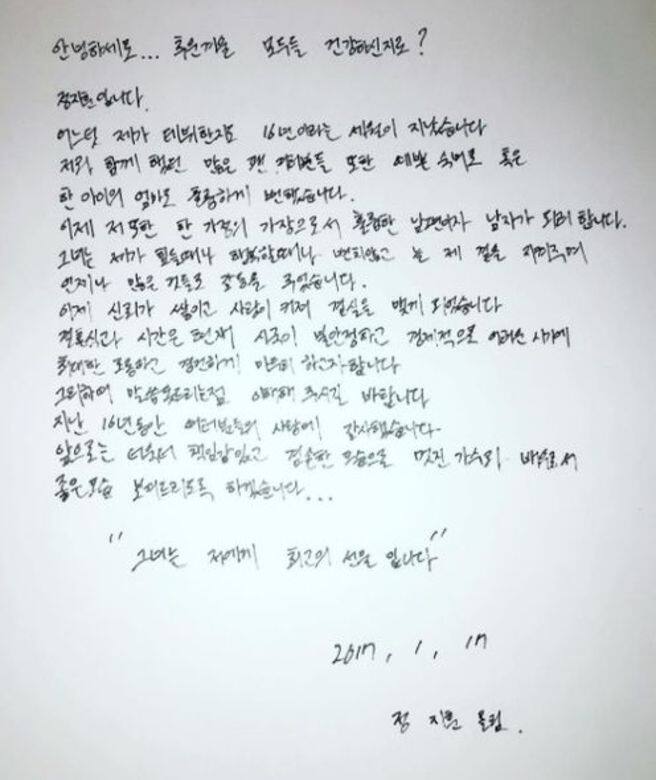 안녕하세요... 추운겨울 모두들 건강하신지요?
정지훈입니다.
어느덧 제가 데뷔한지도 16년이라는 세월이 지났습니다
저와 함께 했던 많은 팬 여러분들 또한 예쁜 숙녀로 혹은
한 아이의 엄마로 훌륭하게 변했습니다.
이제 저 또한 한 가정의 가장으로서 훌륭한 남편이자 남자가 되려 합니다.
그녀는 제가 힘들때나 행복할때나 변치않고 늘 제 곁을 지켜주며
언제나 많은 것들로 감동을 주었습니다.
이제 신뢰가 쌓이고 사랑이 커져 결실을 맺게 되었습니다
결혼식과 시간은 현재 시국이 불안정하고 경제적으로 어려운 시기에
최대한 조용하고 경건하게 마련 하고자합니다
그리하여 말씀못드리는점 이해해 주시길 바랍니다
지난 16년동안 여러분들의 사랑에 감사했습니다
앞으로는 더욱더 책임감있고 겸손한 모습으로 멋진 가수와 배우로서
좋은모습 보여드리도록 하겠습니다...
"그녀는 저에게 최고의 선물 입니다"
2017, 1, 17
정 지훈 올림.